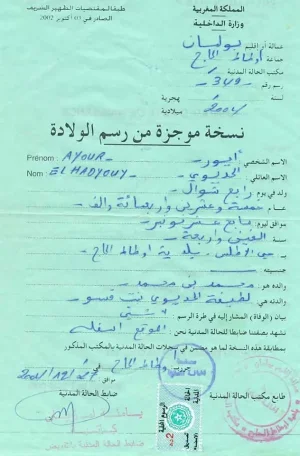 المملكة المغربية
وزارة الداخلية
طبقا لمقتضيات الظهير الشريف
الصادر في 03 أكتوبر 2002
عمالة أو إقليم بولمان
جماعة أوطاط الحاج
مكتب الحالة المدنية
رسم رقم 349
لسنة هجرية
2004 ميلادية
نسخة موجزة من رسم الولادة
الاسم الشخصي أيور Prénom AYOUR
الاسم العائلي Nom ELHADYOUY
ولد في يوم رابع شوال
عام خمسة وعشرين وأربعمائة وألف
موافق ليوم سابع عشر نونبر
سنة ألفين وأربعة
حي الأطلس بلدية أوطاط الحاج
جنسيته
والده هو محمد بن محمد
والدته هي لطيفة بنت
بيان (الوفاة) المشار إليه في طرة الرسم
نشهد بصفتنا ضابطا للحالة المدنية نحن الموقع أسفله
بمطابقة هذه النسخة لما هو مضمن في سجلات الحالة المدنية بالمكتب المذكور
أوطاط الحاج
موافق
طابع مكتب الحالة المدنية
ضابط الحالة المدنية
ضابط الحالة المدنية بالتفويض